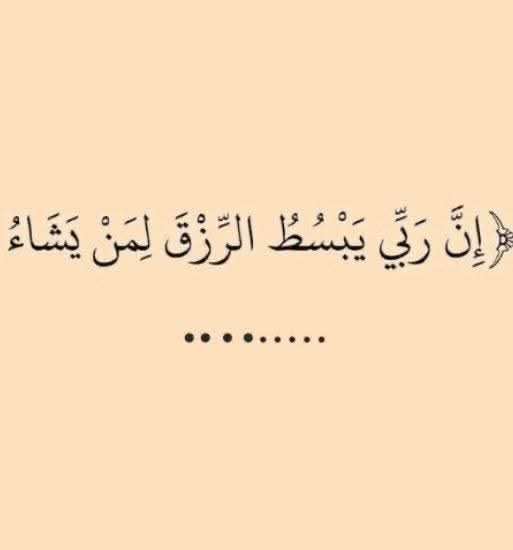 ﴿إِنَّ رَبِّي يَبْسُطُ الرِّزْقَ لِمَنْ يَشَاءُ
.........